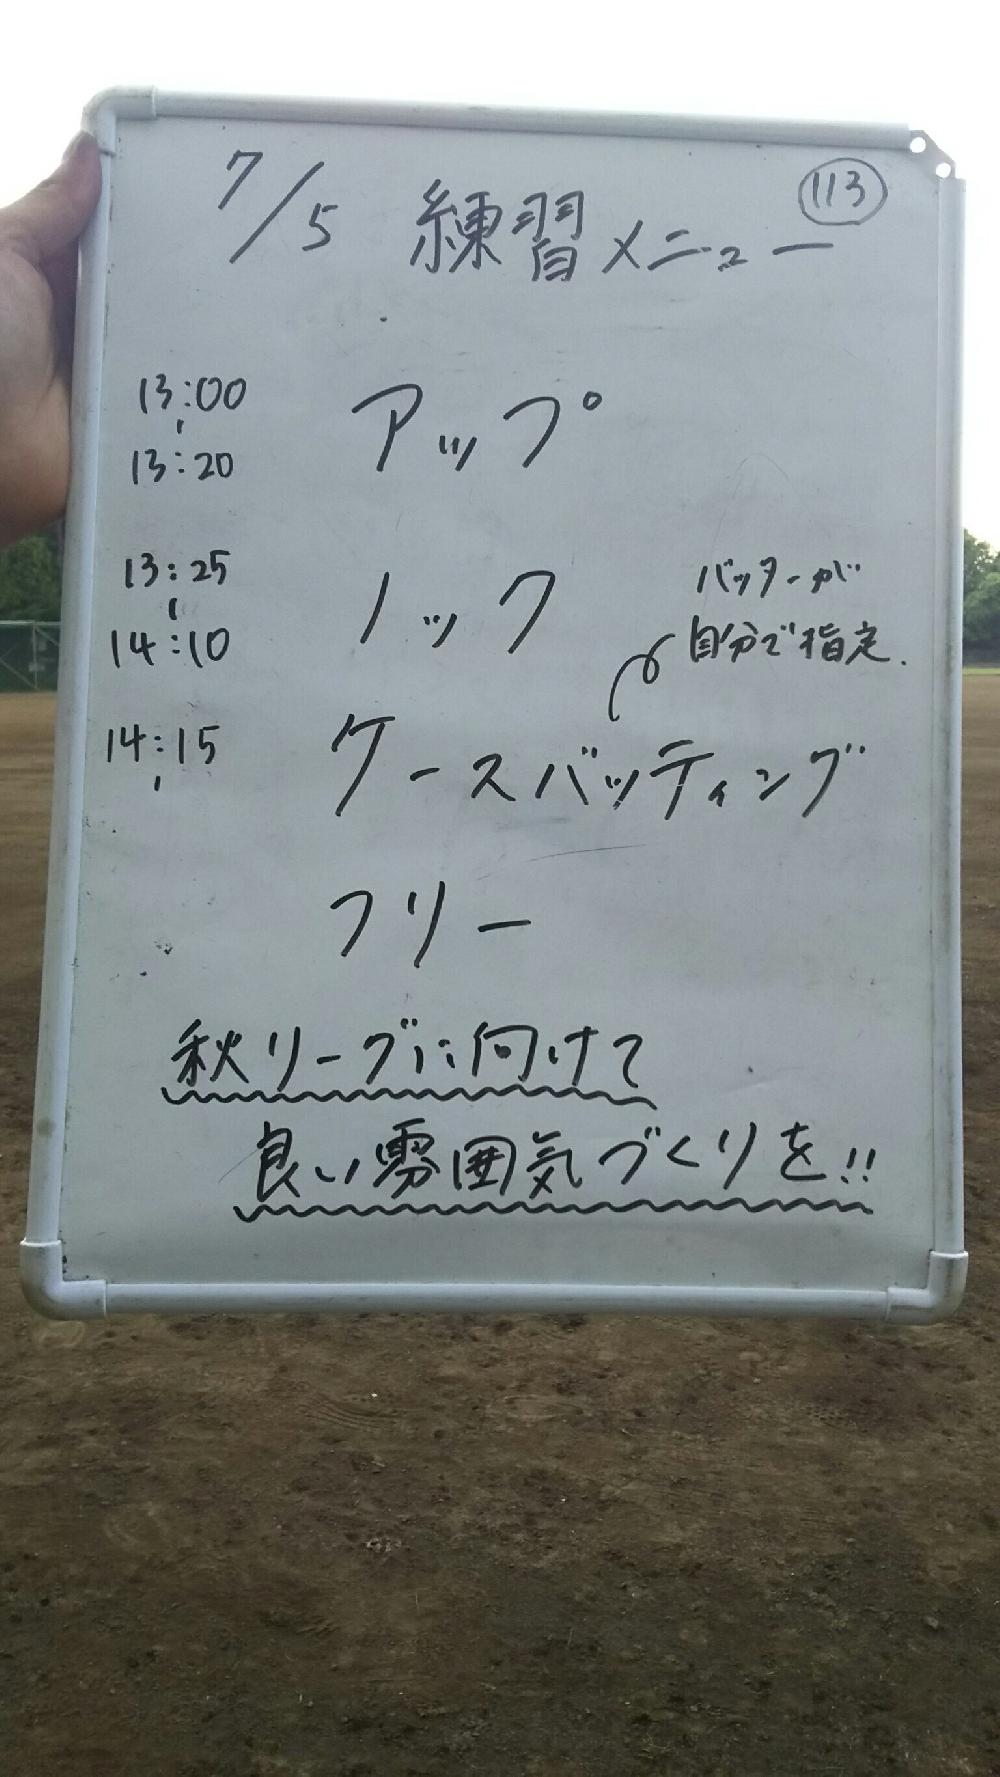 113
7/5 練習メニュー
13:00
~
13:20
アップ
13:25
~
14:10
ノック
バッターが
自分で指定.
14:15
~
ケースバッティング
フリー
秋リーグに向けて
良い雰囲気づくりを!!